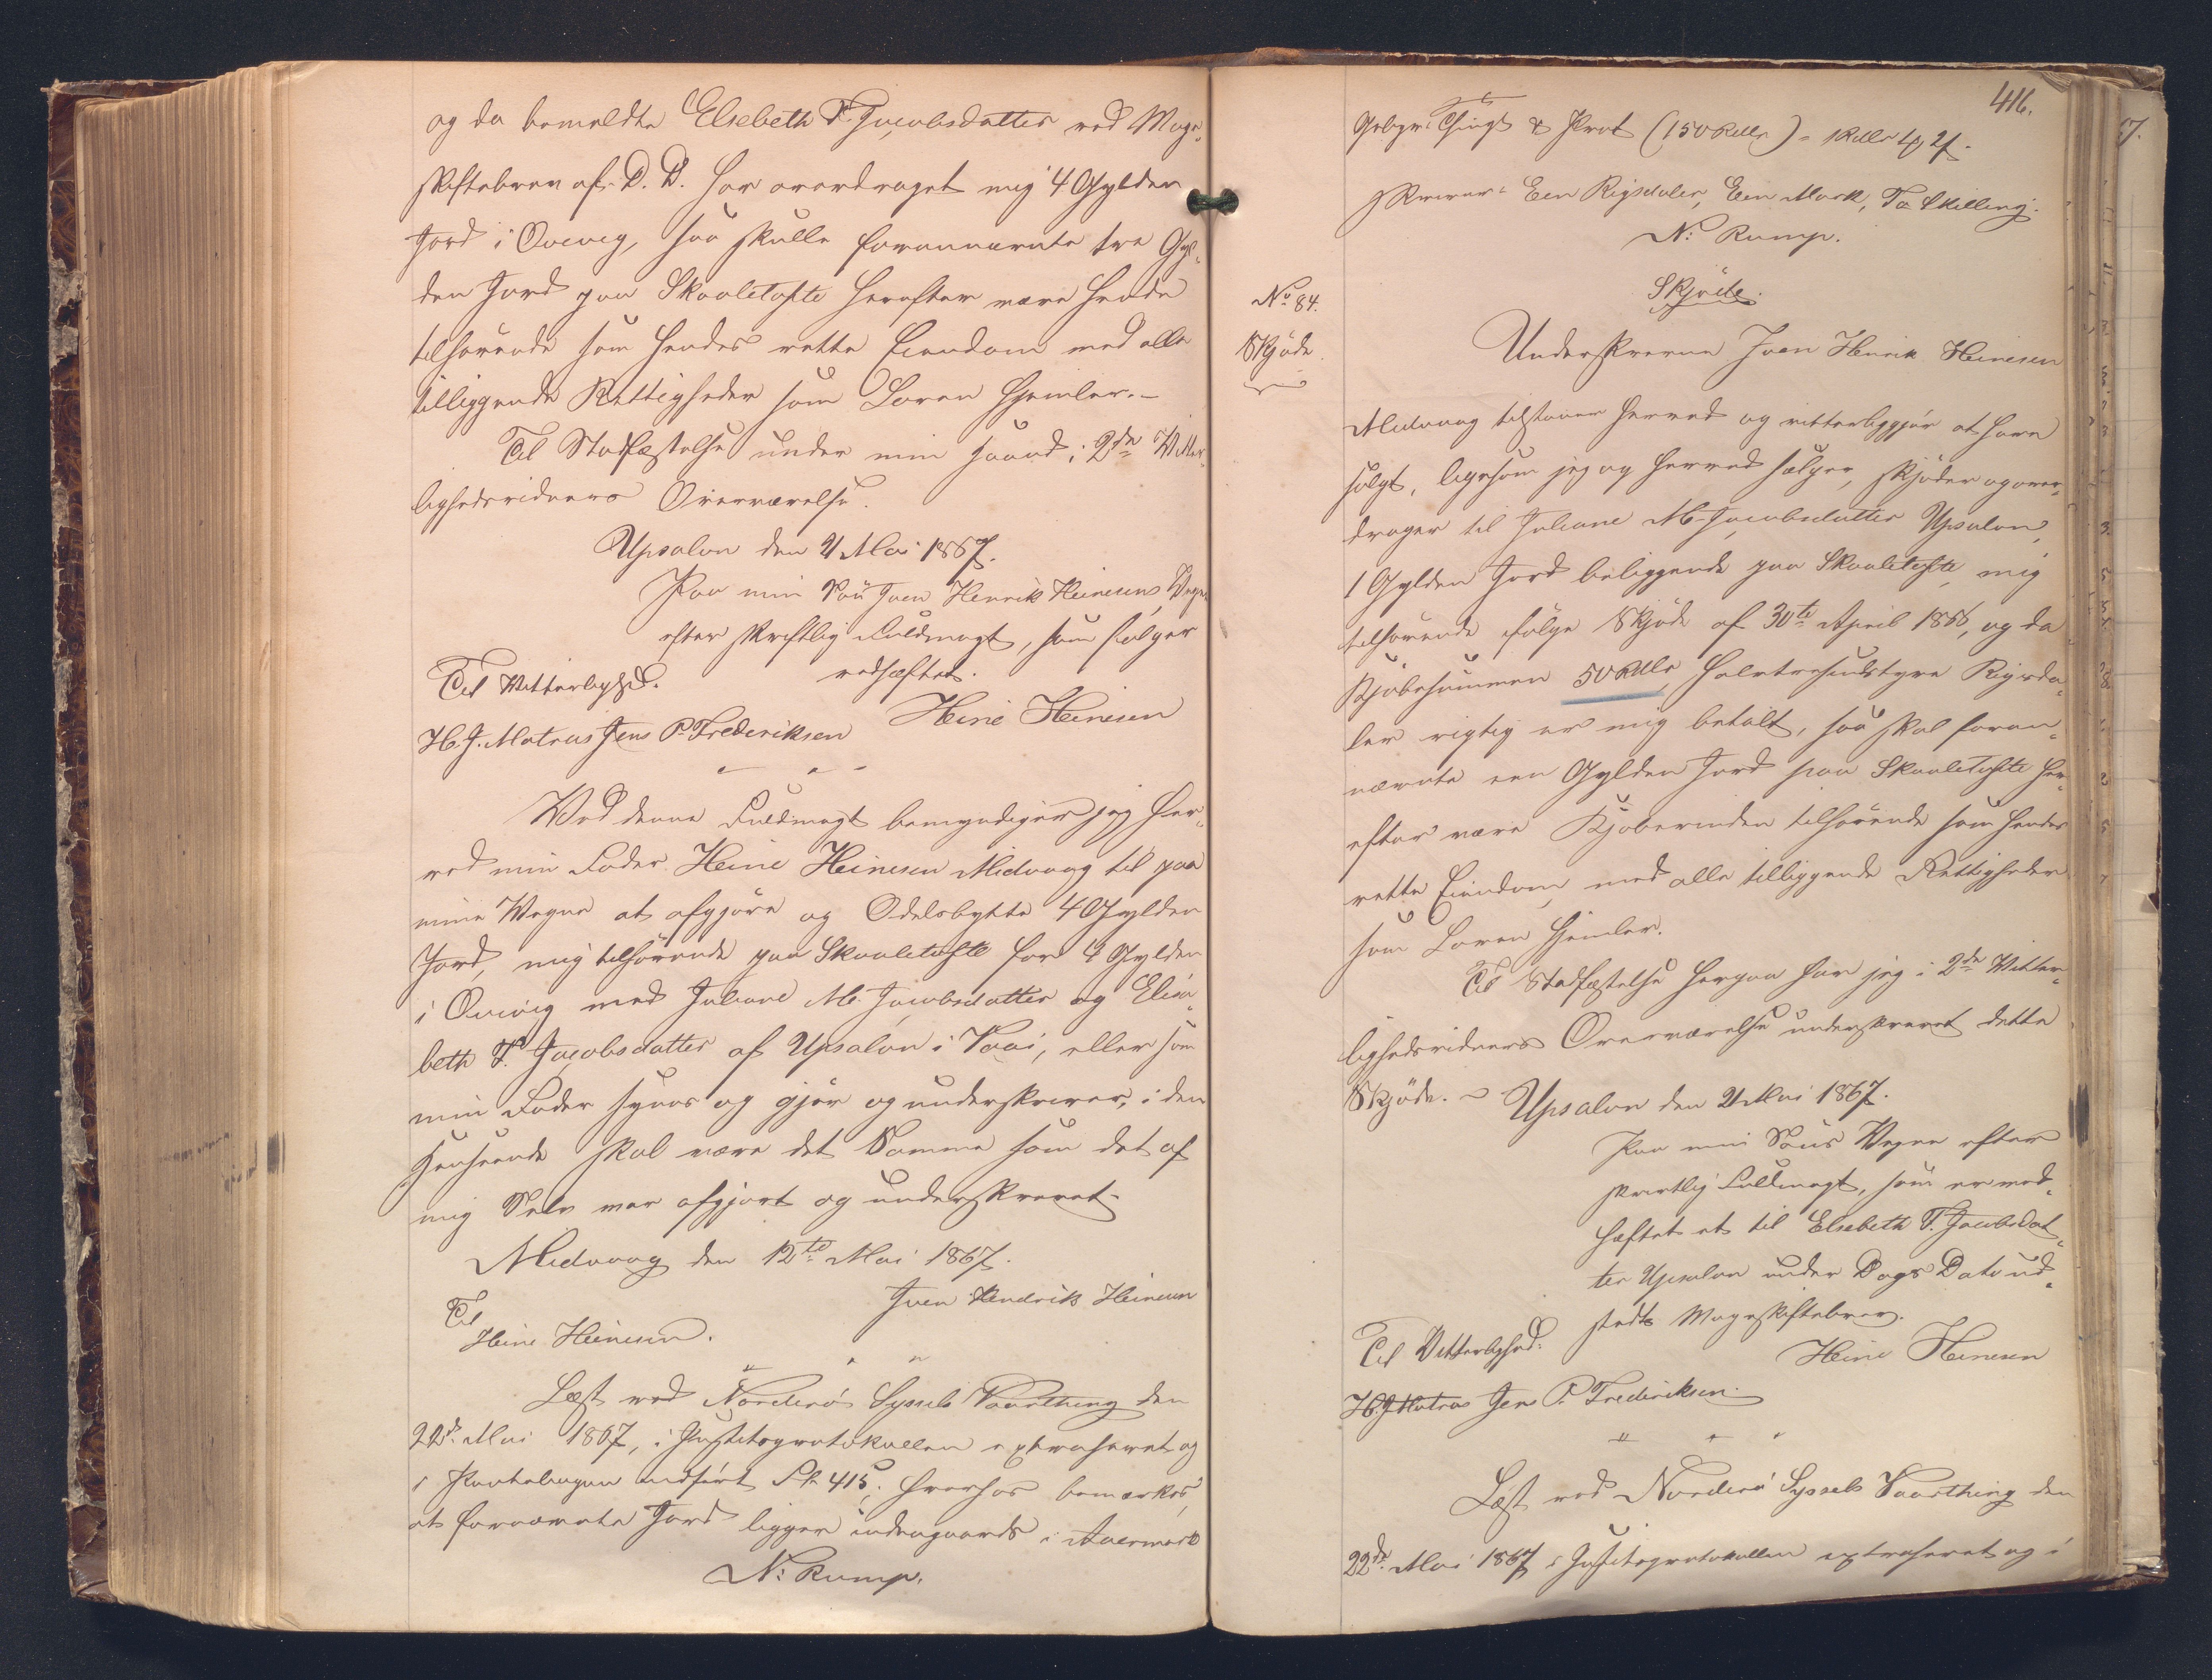 og da bemeldte Elsebeth F. Jacobsdatter ved Mage-
skiftebrev af D. D. har overdraget mig 4 Gylden
Jord i Qvivig, saa skulle forannævnte tre Gyl-
den Jord paa Skaaletofte herefter være hende
tilhørende som hendes rette Eiendom med alle
tilliggende Rettigheder som Loven hjemler.-
Til Stadfæstelse under min Haand i 2de Vitter-
lighedsvidners Overværelse.
Upsalon den 21 Mai 1867.
Paa min Søn Joen Henrik Heinesens Vegne
efter skriftlig Fuldmagt, som følger
vedhæftet.
Til Vitterlighed.
Heine Heinesen
H. J. Matras Jens P. Frederiksen
Ved denne Fuldmagt bemyndiger jeg her-
ved min Fader Heine Heinesen Midvaag til paa
mine Vegne at afgjøre og Odelsbytte 4 Gylden
Jord, mig tilhørende paa Skaaletofte for 4 Gylden
i Qvivig med Juliane M. Jacobsdatter og Elisa-
beth F. Jacobsdatter af Upsalon i Vaai, eller som
min Fader synes og gjør og underskriver, i den
Henseende skal være det Samme som det af
mig Selv var afgjort og underskrevet.
Midvaag den 12te Mai 1867.
Joen Hendrik Heinesen
Til
Heine Heinesen.
Læst ved Norderø Syssels Vaarthing den
22de Mai 1867, i Justitsprotokollen extraheret og
i Pantebogen indført Fol. 415; hvorhos bemærkes,
at fornævnte Jord ligger indengaards i
N: Rump.
416.
Gebyr: Things & Prot (150 Rdlr) = 1 Rdlr 1 ꝳ 2 ß.
skriver: Een Rigsdaler, Een Mark, To Skilling.
N: Rump.
Skjøde.
No 84.
Skjøde.
Underskrevne Joen Henrik Heinesen
Midvaag tilstaaer herved og vitterliggjør at have
solgt, ligesom jeg og herved sælger, skjøder og over-
drager til Juliane M. Jacobsdatter Upsalon,
1 Gylden Jord beliggende paa Skaaletofte, mig
tilhørende ifølge Skjøde af 30te April 1866, og da
Kjøbesummen 50 Rdlr halvtresindstyve Rigsda-
ler rigtig er mig betalt, saa skal foran-
nævnte een Gylden Jord paa Skaaletofte her-
efter være Kjøberinden tilhørende som hendes
rette Eiendom, med alle tilliggende Rettigheder
som Loven hjemler.
Til Stadfæstelse herpaa har jeg i 2de Vitter-
lighedsvidners Overværelse underskrevet dette
Skjøde. - Upsalon den 21 Mai 1867.
Paa min Søns Vegne efter
skriftlig Fuldmagt, som er ved-
hæftet et til Elsebeth F. Jacobsdat-
ter Upsalon under Dags Dato ud-
stedt Mageskiftebrev.
Til Vitterlighed:
Heine Heinesen
H. J. Matras Jens P. Frederiksen.
Læst ved Norderø Syssels Vaarthing den
22de Mai 1867, i Justitsprotokollen extraheret og i